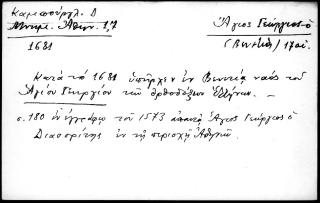 Καμπούρογλ. Δ
Μνημ. Αθην. 1,7
Άγιος Γεώργιος ο
1681
(Βενετία) 17ου.
Κατά το 1681 υπήρχεν εν Βενετία ναός του
Αγίου Γεωργίου των ορθοδόξων Ελλήνων. -
σ. 180 εν εγγράφω του 1573 απαντά Άγιος Γεώργιος ο
Διασορίτης εν τη περιοχή Αθηνών.